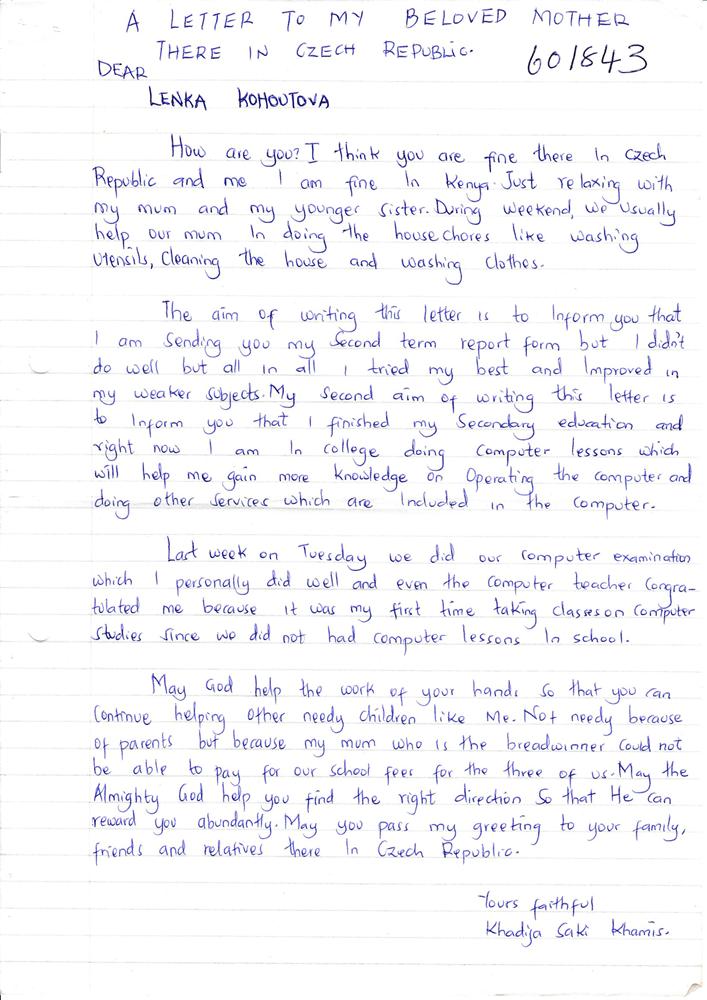 A LETTER TO MY BELOVED MOTHER
THERE IN CZECH REPUBLIC.
601843
DEAR
LENKA KOHOUTOVA
How are you? I think you are fine there In Czech
Republic and me I am fine In Kenya. Just relaxing with
my mum and my younger sister. During weekend, we Usually
help our mum In doing the house chores like washing
Utensils, Cleaning the house and washing Clothes.
The aim of writing this letter is to Inform you that
I am Sending you my Second term report form but I didn't
do well but all in all I tried my best and Improved in
my weaker subjects. My second aim of writing this letter is
to Inform you that I finished my Secondary education and
right now I am In college doing Computer lessons which
will help me gain more knowledge on Operating the computer and
doing other services which are Included in the computer.
Last week on Tuesday we did our computer examination
which I personally did well and even the computer teacher Congra-
tulated me because it was my first time taking classes on Computer
studies since we did not had computer lessons In school.
May God help the work of your hands so that you can
Continue helping other needy children like Me. Not needy because
of parents but because my mum who is the breadwinner Could not
be able to pay for our school fees for the three of us. May the
Almighty God help you find the right direction So that He can
reward you abundantly. May you pass my greeting to your family,
friends and relatives there In Czech Republic.
Yours faithful
Khadija Saki Khamis.